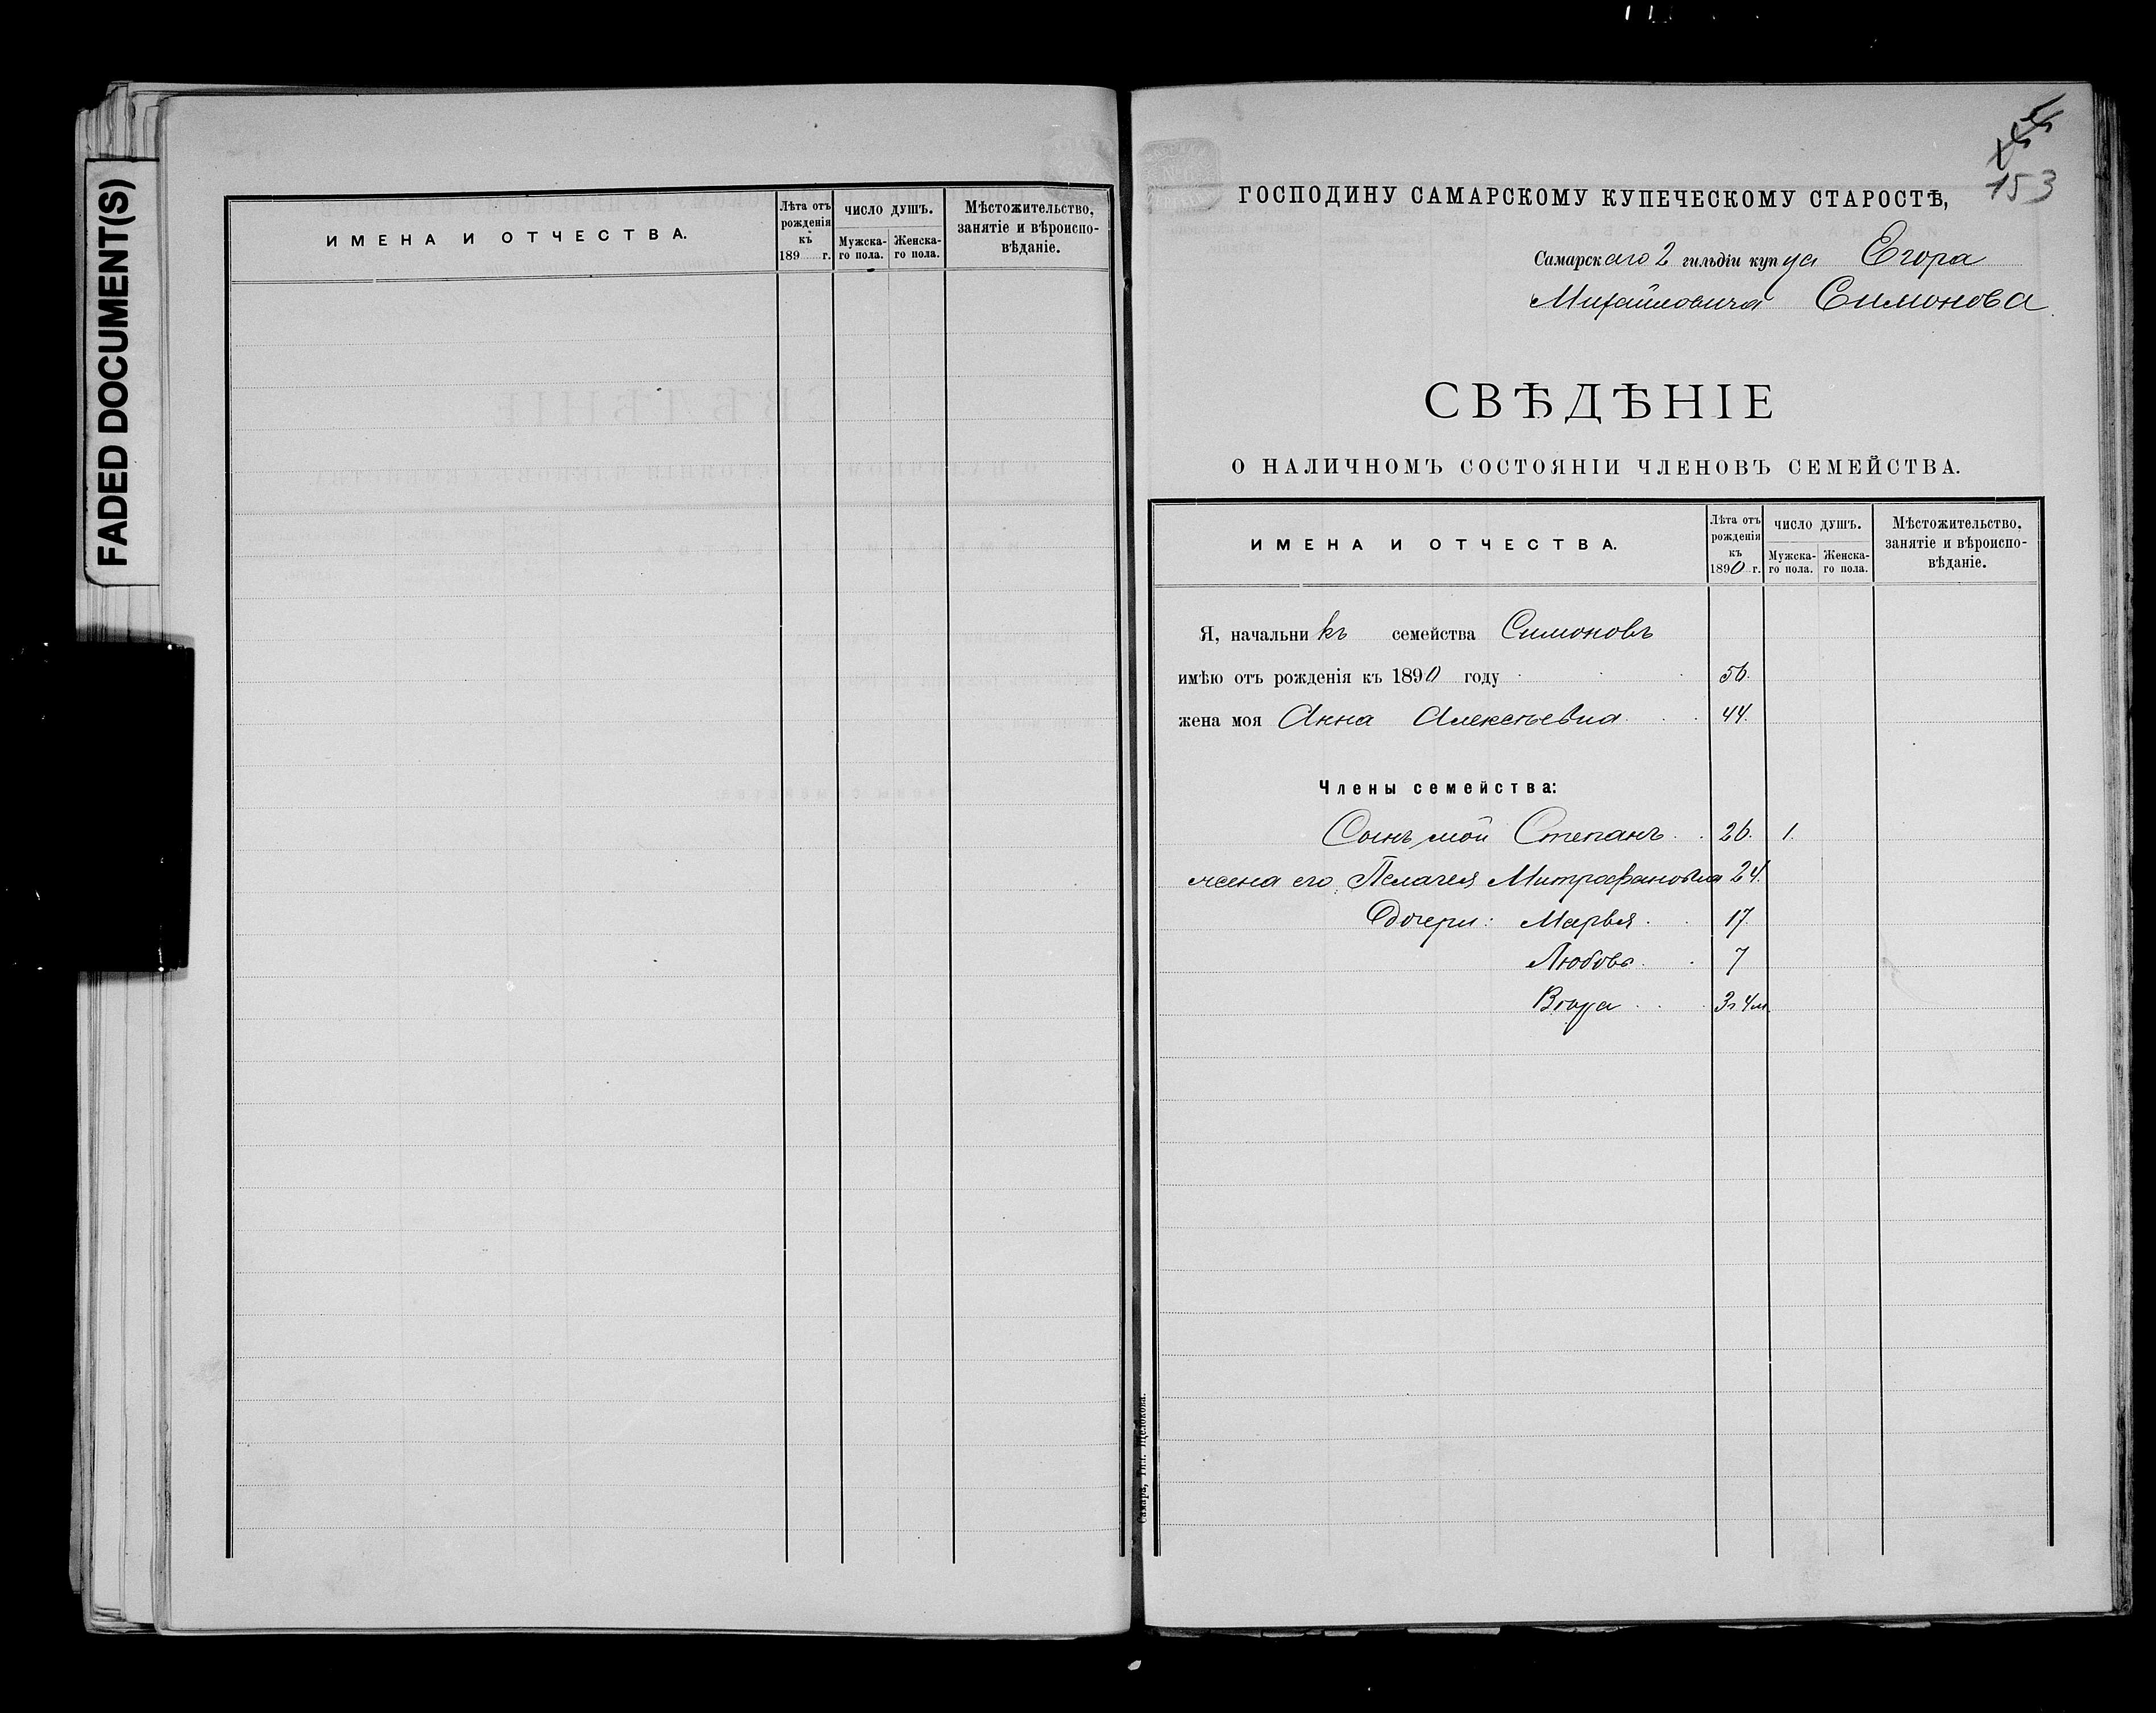 FADED DOCUMENT(S)
ИМЕНА И ОТЧЕСТВА.
Лѣта отъ рожденія къ 189 г.
ЧИСЛО ДУШЪ.
Мужска-го пола.
Женска-го пола.
Мѣстожительство, занятіе и вѣроиспо-вѣданіе.
153
ГОСПОДИНУ САМАРСКОМУ КУПЕЧЕСКОМУ СТАРОСТѢ,
Самарскаго 2 гильдіи купца Егора
Михайловича Симонова.
СВѢДѢНІЕ
О НАЛИЧНОМЪ СОСТОЯНІИ ЧЛЕНОВЪ СЕМЕЙСТВА.
ИМЕНА И ОТЧЕСТВА.
Лѣта отъ рожденія къ 1890 г.
ЧИСЛО ДУШЪ.
Мужска-го пола.
Женска-го пола.
Мѣстожительство. занятіе и вѣроиспо-вѣданіе.
Я, начальникъ семейства Симоновъ
имѣю отъ рожденія къ 1890 году 56.
жена моя Анна Алексѣевна 44.
Члены семейства:
Сынъ мой Степанъ 26. 1.
жена его, Пелагея Митрофановна 24.
Дочери: Марья 17.
Любовь 7
Вѣра 3г 4м
Самара, Тип. Щелокова.